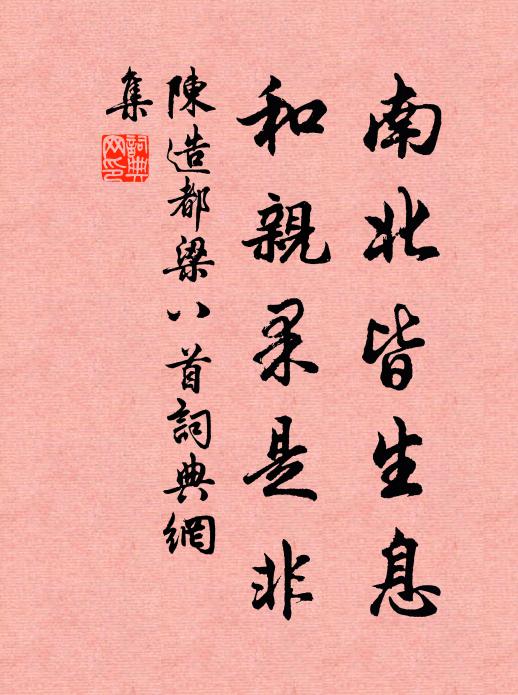 南北皆生息
和親果是非
陳造都梁八首詞典網
集
詞典網印